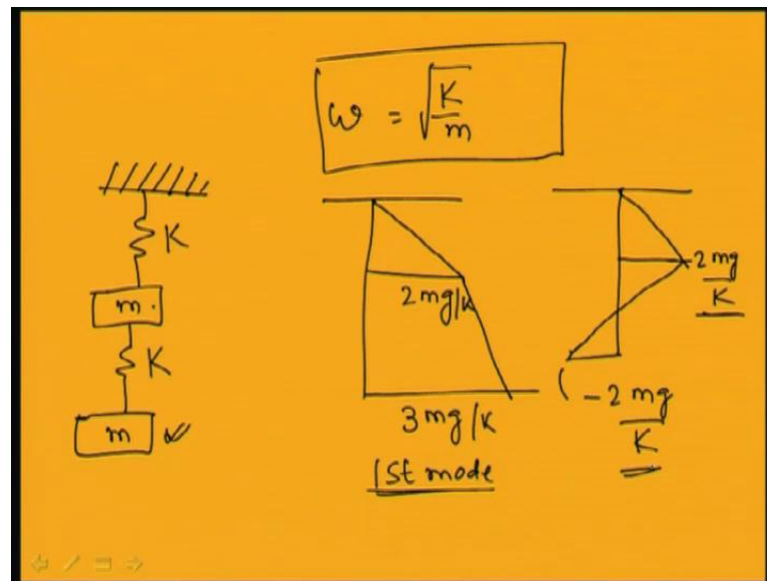 ω = √K/m
K
m.
K
m
2mg/K
3mg/K
1st mode
2mg/K
-2mg/K